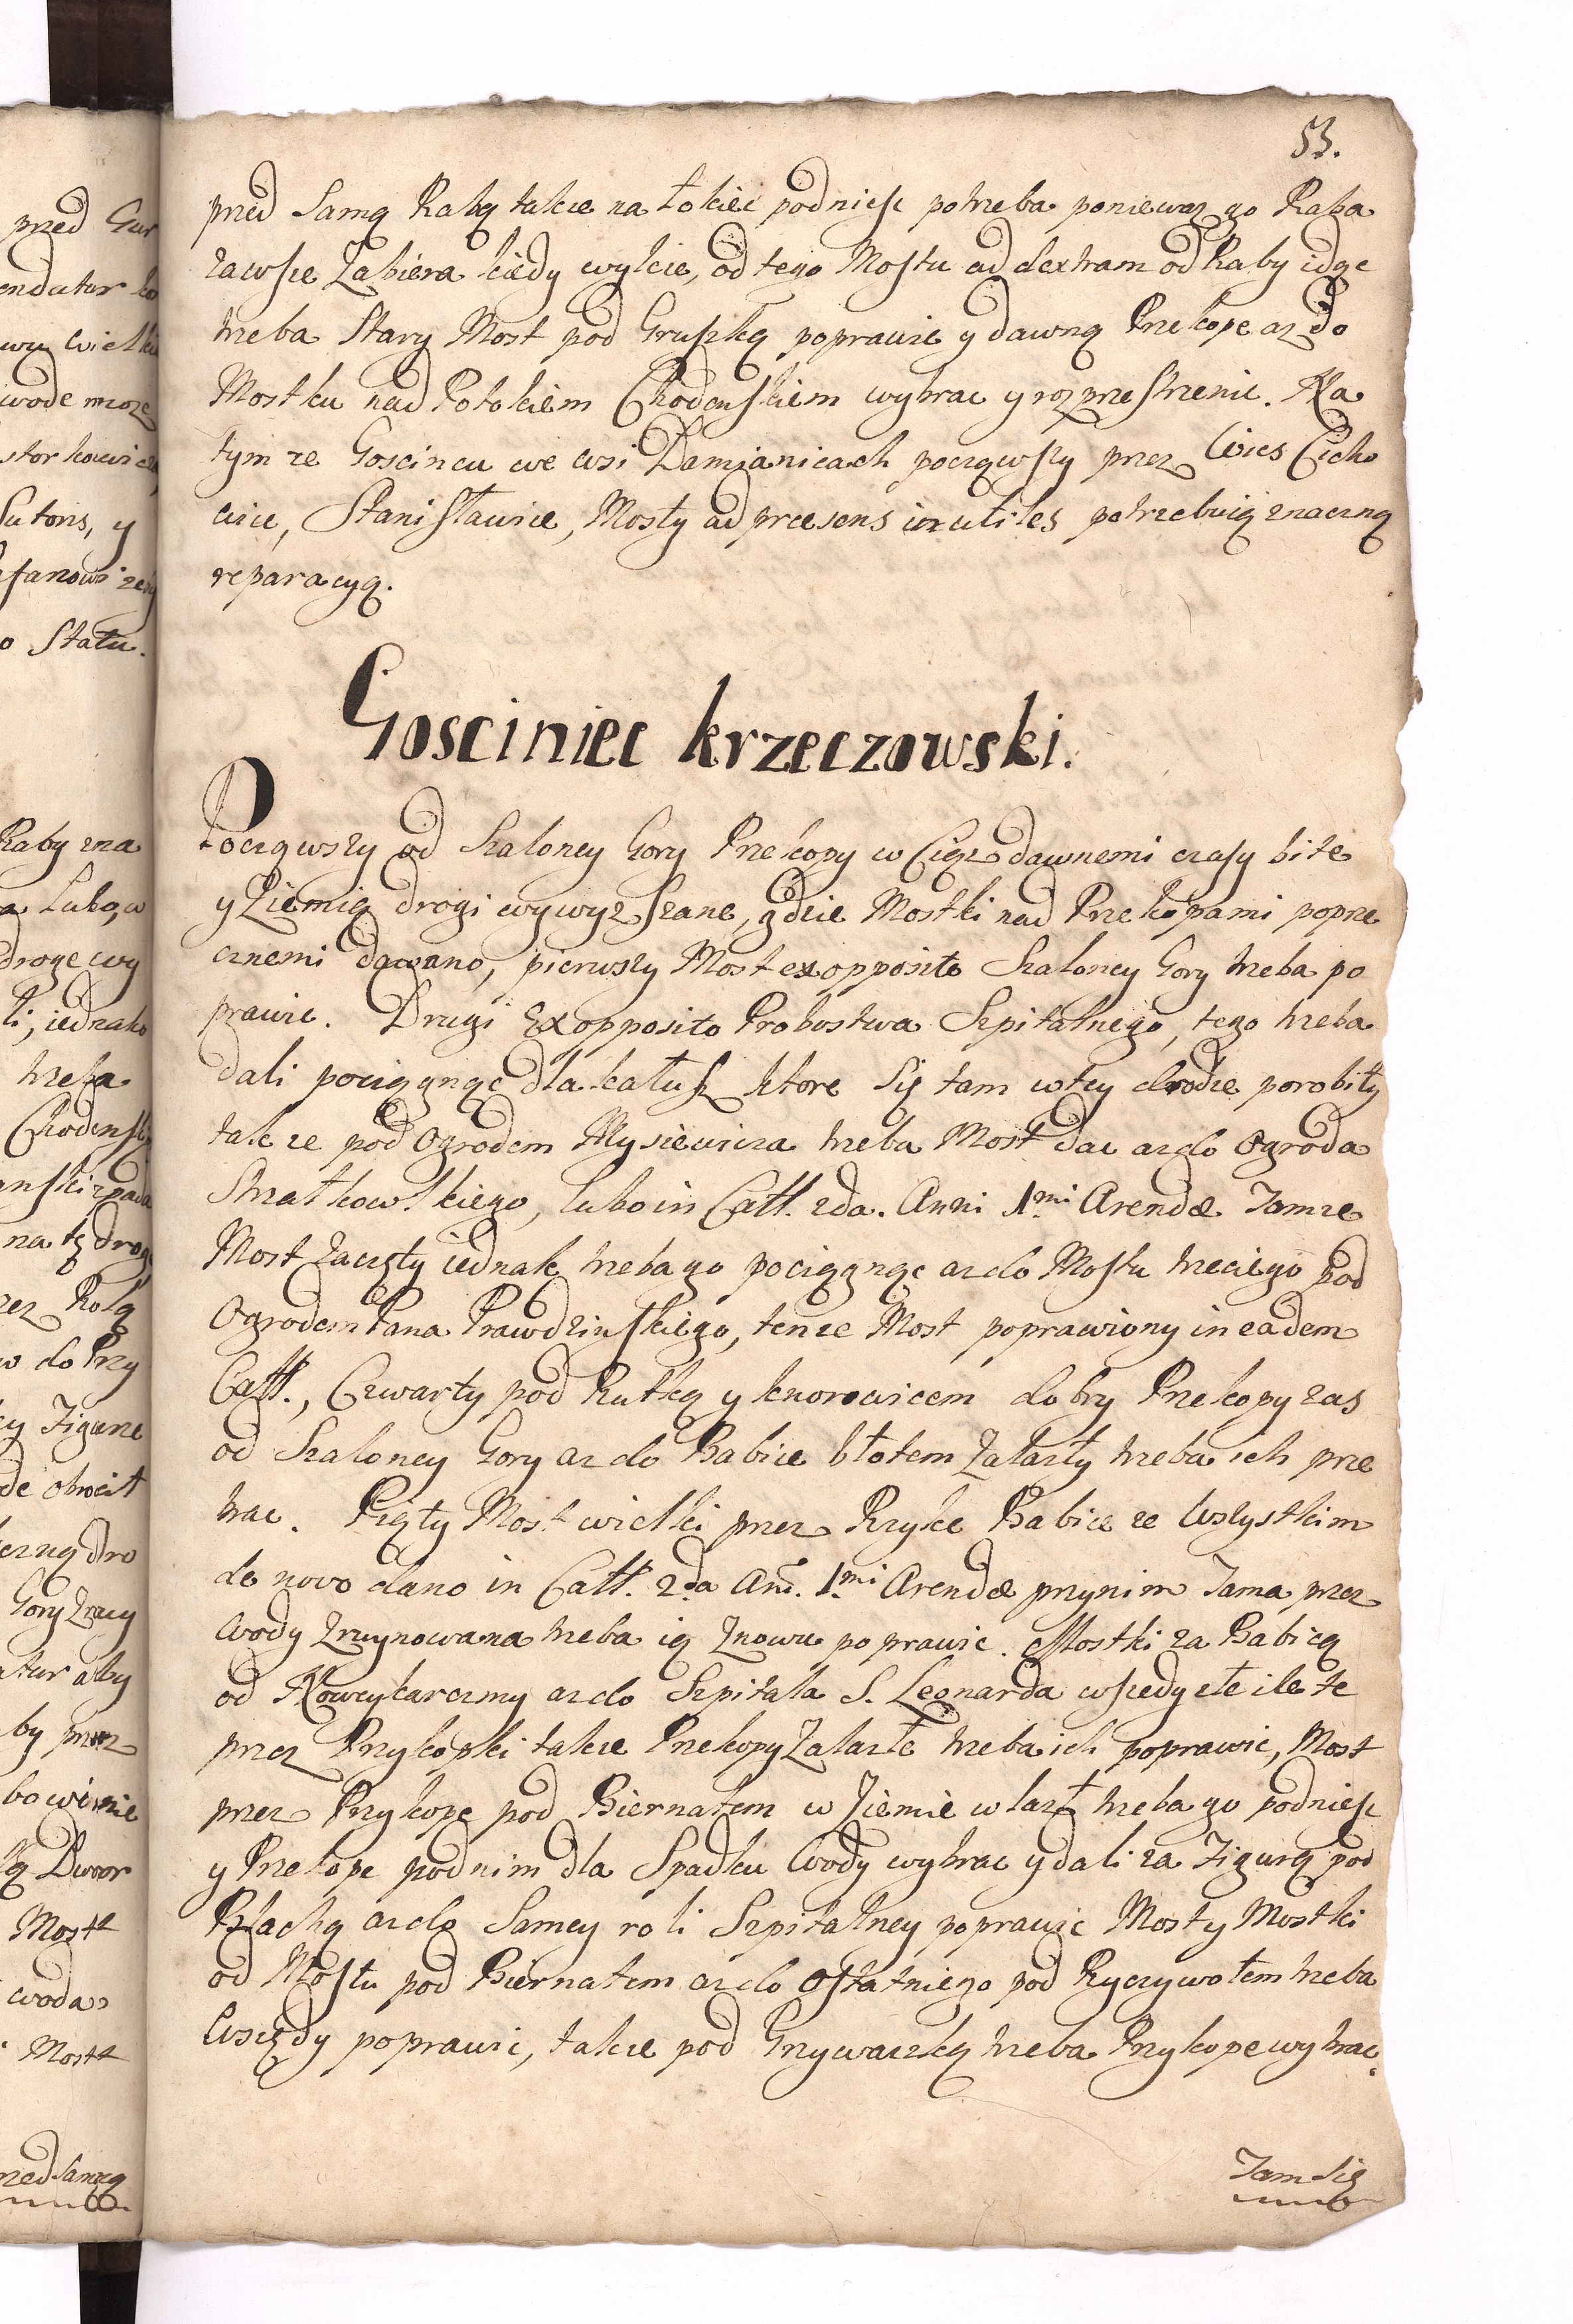 53.
przed Samą Rabą takze na Łokiec podniesc potrzeba poniewaz go Raba
zawsze Zabiera kiedy wyleie, od tego Mostu ad dextram od Raby idąc
trzeba Stary Most pod Gruszką poprawic y dawną Przekope az do
Mostku nad Potokiem Chodenskiem wybrac y rozprzestrzenic. Na
tym ze Goscincu we wsi Damianicach począwszy przez Wies Cicha
wice, Stanisławice, Mosty ad præsens inutiles potrzebuią znaczną
reparacyą.
Gosciniec krzeczowski.
Począwszy od Szaloney Gory Przekopy w Ciąz dawnemi czasy bite
y Ziemią drogi wywyzszane, gdzie Mostki nad Przekopami poprze
cznemi dawano, pierwszy Most ex opposito Szaloney Gory trzeba po
prawic. Drugi Ex opposito Probostwa Szpitalnego, tego trzeba
dali pociągnąc dla kałusz ktore Się tam w tey drodze porobiły
takze pod Ogrodem Mysiewicza trzeba Most dac az do Ogroda
Stratkowskiego, lubo in Catt. 2da. Anni 1mi Arendæ Tamze
Most Zaczęty iednak trzeba go pociągnąc az do Mostu trzeciego pod
Ogrodem Pana Prawdzinskiego, tenze Most poprawiony in eadem
Catt., Czwarty pod Rutką y knorowicem dobry Przekopy zas
od Szaloney Gory az do Babice błotem Zalazły trzeba ich prze
brac. Piąty Most wielki przez Rzyke Babice ze Wszystkim
de novo dano in Catt. 2da Ani. 1mi Arendæ przynim Tama przez
Wody Zruynowana trzeba ią Znowu poprawic. Mostki za Babicą
od Nowey karczmy az do Szpitala S. Leonarda wszedy złe ile te
przez Przykopki takze Przekopy Zalazłe trzeba ich poprawic, Most
przez Przykopę pod Biernatem w Ziemie wlazł trzeba go podniesc
y Przekope pod nim dla Spadku Wody wybrac y dali za Figurą pod
Blachą az do Samey roli Szpitalney poprawic Mosty Mostki
od Mostu pod Biernatem az do Ostatniego pod Ryczywołem trzeba
Wszędy poprawic, takze pod Grzywaczką trzeba Przykope wybrac.
Tam Się